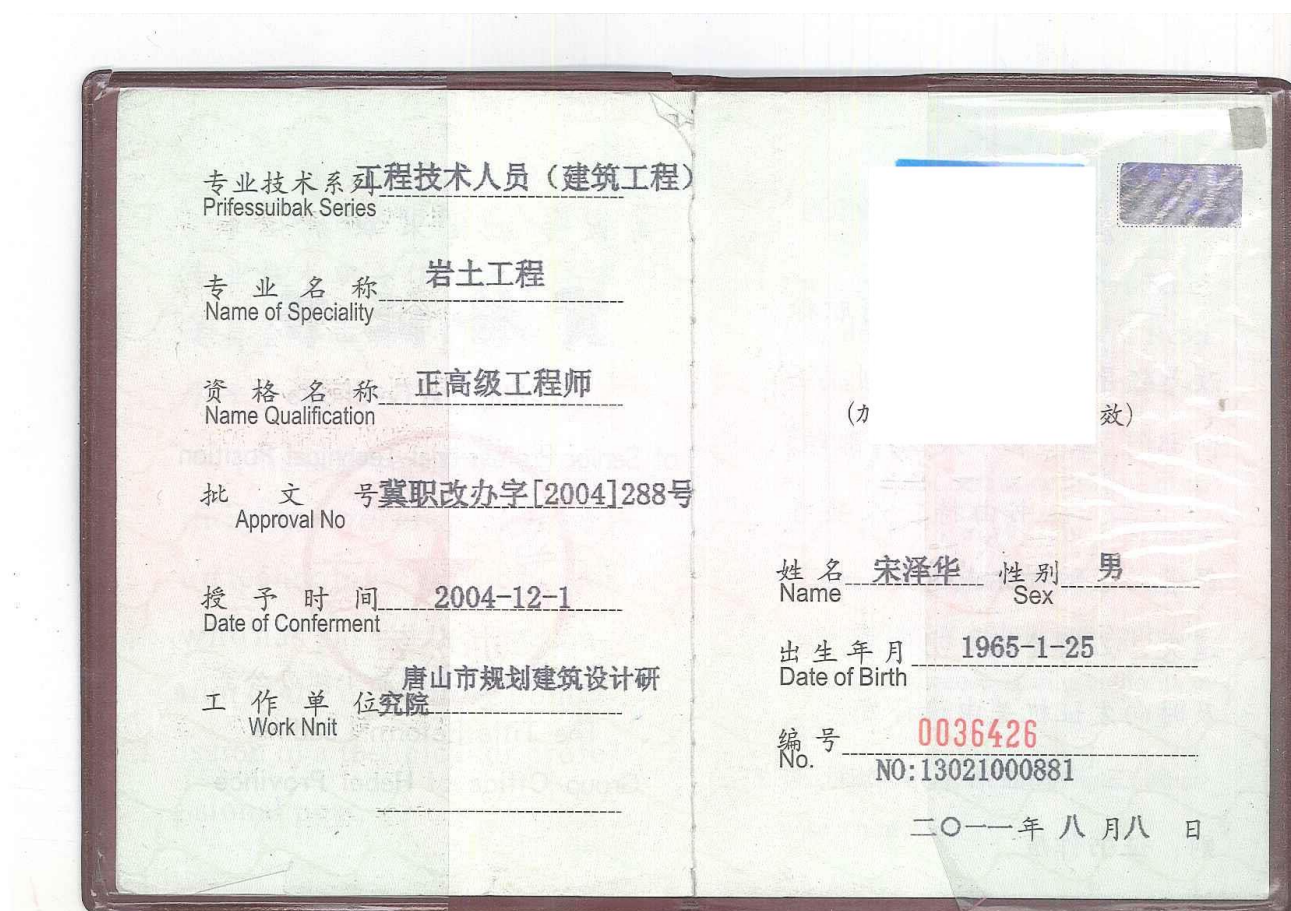 专业技术系列工程技术人员（建筑工程）
Prifessuibak Series
专业名称 岩土工程
Name of Speciality
资格名称 正高级工程师
Name Qualification
批文号冀职改办字[2004]288号
Approval No
授予时间 2004-12-1
Date of Conferment
唐山市规划建筑设计研
工作单位究院
Work Nnit
(力 效)
姓名 宋泽华 性别 男
Name Sex
出生年月 1965-1-25
Date of Birth
编号 0036426
No. NO:13021000881
二〇一一年 八 月八 日